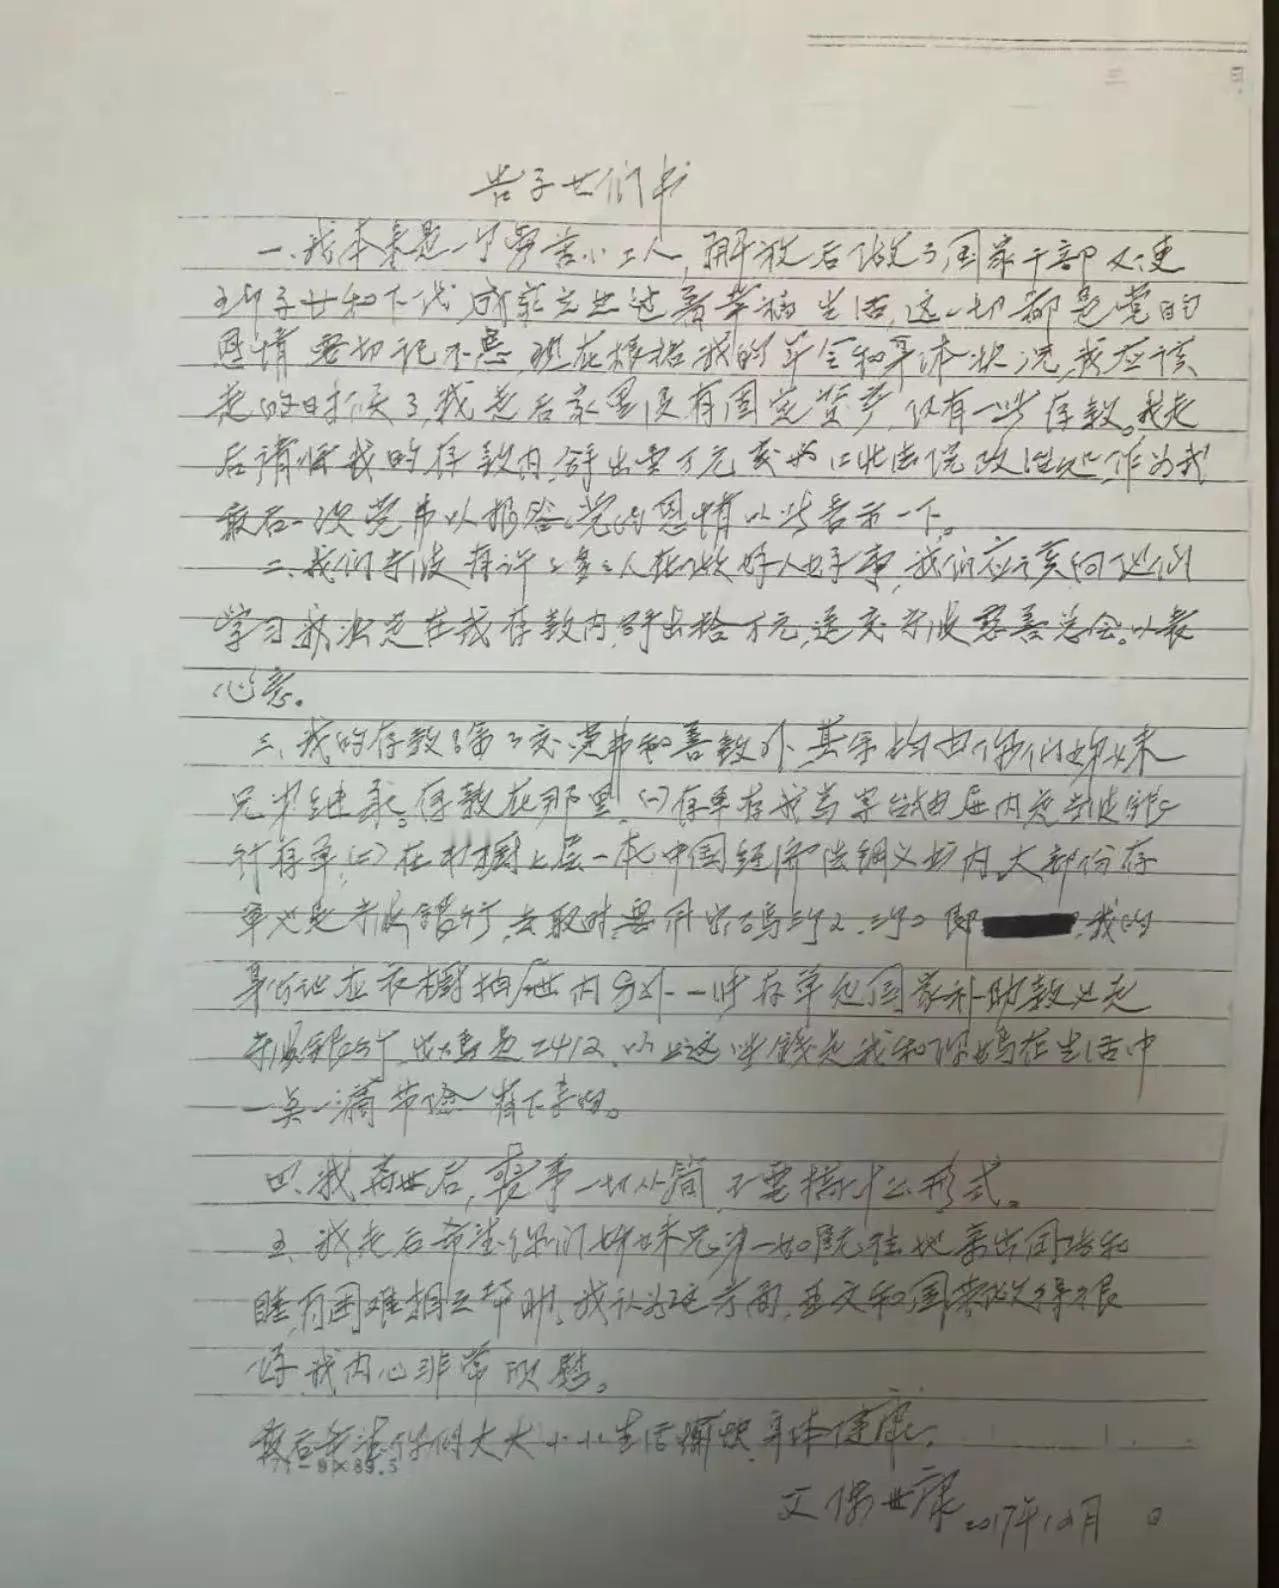 告子女们书
一、我本来是一个劳苦小工人,解放后做了国家干部又使
子女和下代成家立业过着幸福生活,这一切都是党的
恩情要切记不忘,现在根据我的年令和身体状况,我应该
走的时候了,我走后家里没有固定资产,仅有一些存款。我走
后请你我的存款内拿出壹万元交给江北法院政治处作为我
最后一次党费以报答党的恩情以此表示一下。
二、我们宁波有许许多多人在做好人好事,我们应该向他们
学习我决定在我存款内拿出拾万元送交宁波慈善总会。以表
心意。
三、我的存款除了交党费和善款外,其余均由你们姊妹
兄弟继承。存款在那里,(一)存单在我写字台抽屉内是宁波银
行存单(二)在木橱上层一本中国经济法纲义书内,大部份存
单也是宁波银行,去取时要用密码 即 我的
身份证在衣橱抽屉内另外一些存单包国家补助款也是
宁波银行,密码是2412,以上这些钱是我和你妈在生活中
一点一滴节俭省下来的。
四、我离世后,丧事一切从简,不要搞什么形式。
五、我走后希望你们姊妹兄弟一如既往地亲密团结和
睦,有困难相互帮助,我认为建芳、 和国 做得很
好,我内心非常欣慰。
最后希望你们大大小小生活愉快,身体健康。
-8×89.5
父 世康 2017年10月 日